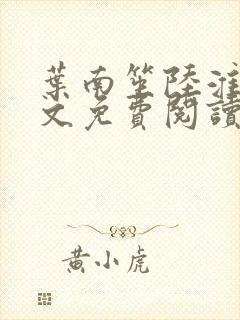 葉南笙陸淮
文免費閱讀
黃小虎